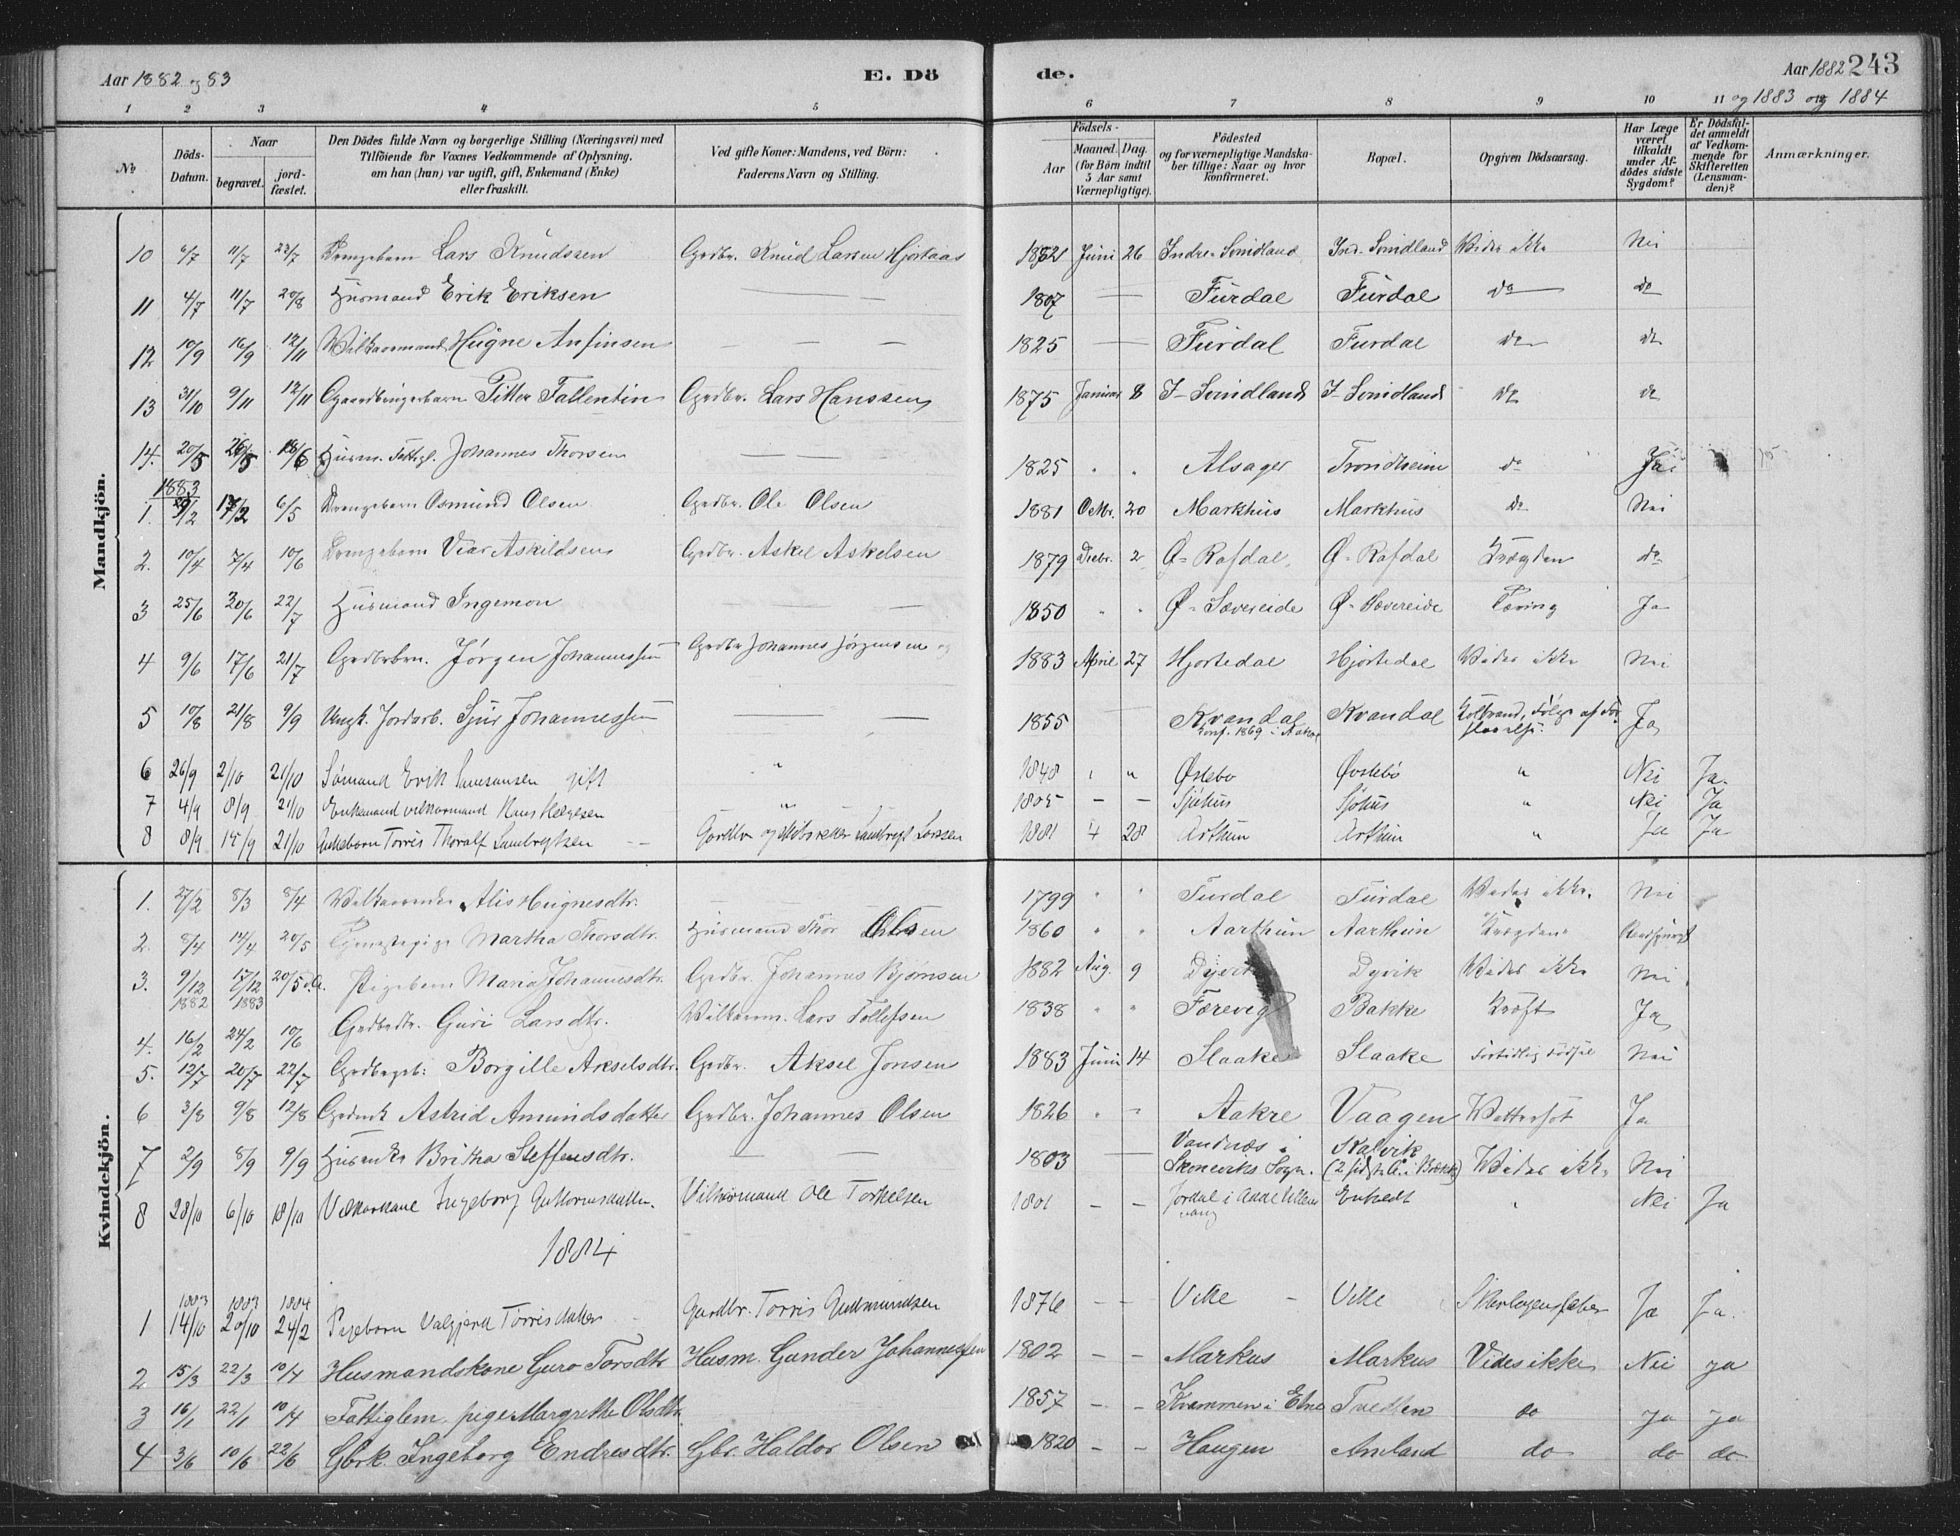 Aar 1882 og 83
E. Dö
de.
Aar 1882 243
og 1883 og 1884
1 2 3 4 5 6 7 8 9 10 11 12
No
Döds-Datum.
Naar
begravet.
jord-fæstet.
Den Dödes fulde Navn og borgerlige Stilling (Næringsvei) med Tilföiende for Voxnes Vedkommende af Oplysning, om han (hun) var ugift, gift, Enkemand (Enke) eller fraskilt.
Ved gifte Koner: Mandens, ved Börn: Faderens Navn og Stilling.
Födsels-
Aar
Maaned. Dag.
(for Börn indtil 5 Aar samt Værnepligtige).
Födested og for værnepligtige Mandskaber tillige: Naar og hvor konfirmeret.
Bopæl.
Opgiven Dödsaarsag.
Har Læge været tilkaldt under Afdödes sidste Sygdom?
Er Dödsfaldet anmeldt af Vedkommende for Skifteretten (Lensmanden)?
Anmærkninger.
Mandkjön.
10 6/7 11/7 23/7 Drengebarn Lars Knudssen Grdbr. Knud Larsen Hjortaas 1882 Juni 26 Indre-Svindland Ind-Svindland Vides ikke Nei
11 4/7 11/7 20/8 Husmand Erik Eriksen 1807 Furdal Furdal do do
12 10/9 16/9 12/11 Hugne Anfinsen 1825 Furdal Furdal do do
13 31/10 9/11 12/11 Pitter Fallentin Grdbr. Lars Hanssen 1875 Januar 8 I-Svindland I-Svindland do do
14. 20/5 26/5 18/6 Husm. Fattigl. Johannes Thorsen 1825 " " Alsager Trondheim do
1883
1. 17/2 6/5 Drengebarn Osmund Olsen Grdbr. Ole Olsen 1881 Octbr. 20 Markhus Markhus do Nei
2. 10/4 7/4 10/6 Drengebarn Askildsen Grdbr. Askel Askelsen 1879 Decbr. 2 Ø-Rafdal Ø-Rafdal do
3 25/6 30/6 22/7 Husmand Ingemon 1850 " " Ø-Sævereide Ø-Sævereide Tæring Ja
4 9/6 17/6 21/7 Grdbrbrn. Jørgen Johannessen Grdbr Johannes Jørgensen 1883 April 27 Hjortedal Hjortedal Vides ikke Nei
5 10/8 21/8 9/9 Ungk. Jordarb. Sjur Johannessen 1855 Kvandal Kvandal Koldbrand, Følge af Ja
konf. 1869 i
6 26/9 2/10 21/10 Sømand Erik Samsonsen gift " 1848 " " Østebø Østebø " Nei Ja.
7 4/9 8/9 21/10 Enkemand vilkaarmand Hans Helgesen " 1805 – – Sjøhus Sjøhus " Nei Ja
8 8/9 15/9 21/10 Torris Thoralf Lambregtsen Gardbr og Lambregt Larssen 1881 4 28 Arthun Arthun " Ja Ja
Kvindekjön.
1. 27/2 8/3 8/4 Alis Heignesdtr. 1799 " " Furdal Furdal Vides ikke. Nei
2. 8/4 14/4 20/5 Martha Thorsdtr. Husmand Thor Olsen 1860 " " Aarthun Aarthun
3. 9/12 17/12 20/5 Pigebarn Maria Johannesdtr. Grdbr. Johannes Bjørnsen 1882 Aug. 9 Dyvik Dyvik Vides ikke Nei
1882 1883
4. 16/2 24/2 10/6 Guri Larsdtr. Vilkaarm. Lars Tollefsen 1838 " " Færevig Bakke Kræft Ja
5. 12/7 20/7 22/7 Borgille Akselsdtr. Grdbr. Aksel Jonsen 1883 Juni 14 Slaake Slaake Fortidlig Fødsel Nei
6 3/8 9/8 12/8 Astrid Amundsdatter Grdbr. Johannes Olsen 1826 " – Aakre Vaagen Vattersot Ja
7 2/9 8/9 9/9 Husenke Britha Steffensdtr. 1803 Vandnæs i Skoneviks Sogn. Kalvik Vides ikke Nei
8 28/10 6/10 18/10 Vilkarkane Ingeborg Guttormsdatter. Vilkarmand Ole Torkelsen 1801 – – Jordal i Odde Ullensvang " Nei Ja
1884
1883 1883 1884
1 14/10 20/10 24/2 Pigebarn Valgjerd Torrisdatter Gardbr. Torris Gudmundsen 1876 – – Vike – Vike Skarlagensfeber Ja Ja.
2 15/3 22/3 10/4 Husmandskone Guro Torsdtr Husm. Gunder Johannessen 1802 – – Markus Markus Vides ikke Nei ja
3 16/1 22/1 10/4 Fattiglem. pige Margrethe Olsdtr 1857 – – Kvammen i Etne Tvedten do ja ja
4 3/6 10/6 22/6 Gbrk. Ingeborg Endresdtr. Gbr. Haldor Olsen 1820 – – Haugen Amland do do do